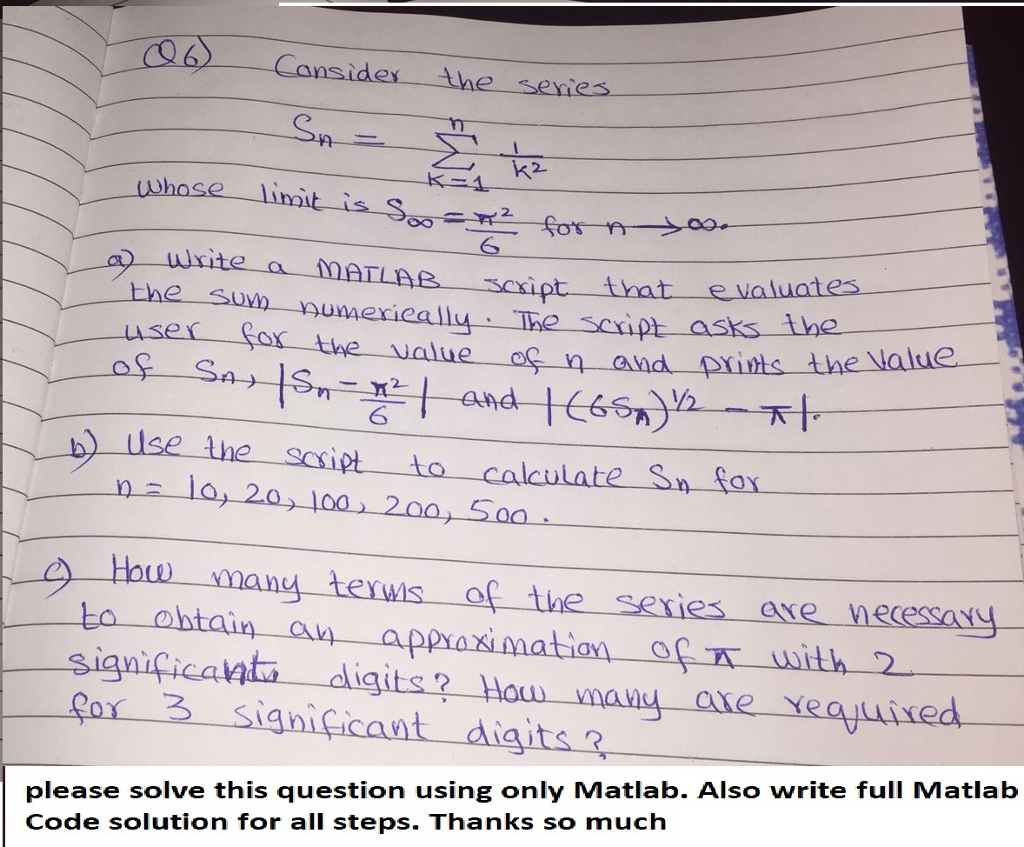 Q6) Consider the series
Sn = n∑k=1 1/k²
whose limit is S∞ = π²/6 for n → ∞.
a) Write a MATLAB script that evaluates
the sum numerically. The script asks the
user for the value of n and prints the value
of Sn, |Sn - π²/6| and |(6Sn)^1/2 - π|.
b) Use the script to calculate Sn for
n = 10, 20, 100, 200, 500.
c) How many terms of the series are necessary
to obtain an approximation of π with 2
significant digits? How many are required
for 3 significant digits?
please solve this question using only Matlab. Also write full Matlab
Code solution for all steps. Thanks so much